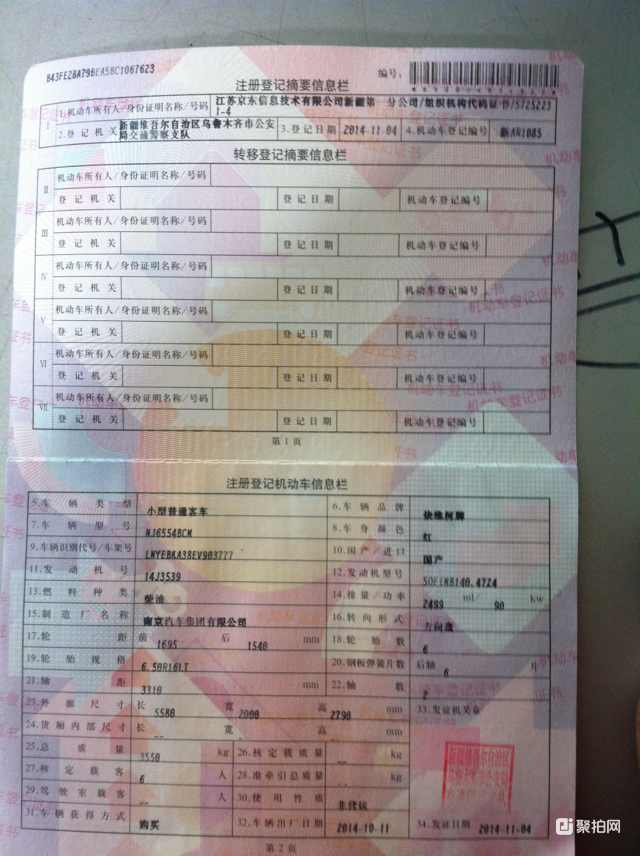 B43FE2BA79BEA58C1067623
编号:
注册登记摘要信息栏
I
1.机动车所有人/身份证明名称/号码 江苏京东信息技术有限公司新疆第一分公司/组织机构代码证书/5725223
1-4
2.登记机关 新疆维吾尔自治区乌鲁木齐市公安局交通警察支队 3.登记日期 2014-11-04 4.机动车登记编号 新AR1085
转移登记摘要信息栏
II 机动车所有人/身份证明名称/号码
登记机关 登记日期 机动车登记编号
III 机动车所有人/身份证明名称/号码
登记机关 登记日期 机动车登记编号
IV 机动车所有人/身份证明名称/号码
登记机关 登记日期 机动车登记编号
V 机动车所有人/身份证明名称/号码
登记机关 登记日期 机动车登记编号
VI 机动车所有人/身份证明名称/号码
登记机关 登记日期 机动车登记编号
VII 机动车所有人/身份证明名称/号码
登记机关 登记日期 机动车登记编号
第1页
注册登记机动车信息栏
5.车辆类型 小型普通客车 6.车辆品牌 依维柯牌
7.车辆型号 NJ6554BCM 8.车身颜色 红
9.车辆识别代号/车架号 LNYEBKA38EV903777 10.国产/进口 国产
11.发动机号 14J3539 12.发动机型号 SOFIM8140.47Z4
13.燃料种类 柴油 14.排量/功率 2499 ml/ 90 kw
15.制造厂名称 南京汽车集团有限公司 16.转向形式 方向盘
17.轮距 前 1695 后 1540 mm 18.轮胎数 6
19.轮胎规格 6.50R16LT 20.钢板弹簧片数 后轴 6 片
21.轴距 3310 mm 22.轴数 2
23.外廓尺寸 长 5580 宽 2000 高 2790 mm 33.发证机关章
24.货厢内部尺寸 长 -- 宽 -- 高 -- mm
25.总质量 3550 kg 26.核定载质量 -- kg
27.核定载客 6 人 28.准牵引总质量 -- kg
29.驾驶室载客 -- 人 30.使用性质 非营运
31.车辆获得方式 购买 32.车辆出厂日期 2014-10-11 34.发证日期 2014-11-04
第2页
聚拍网